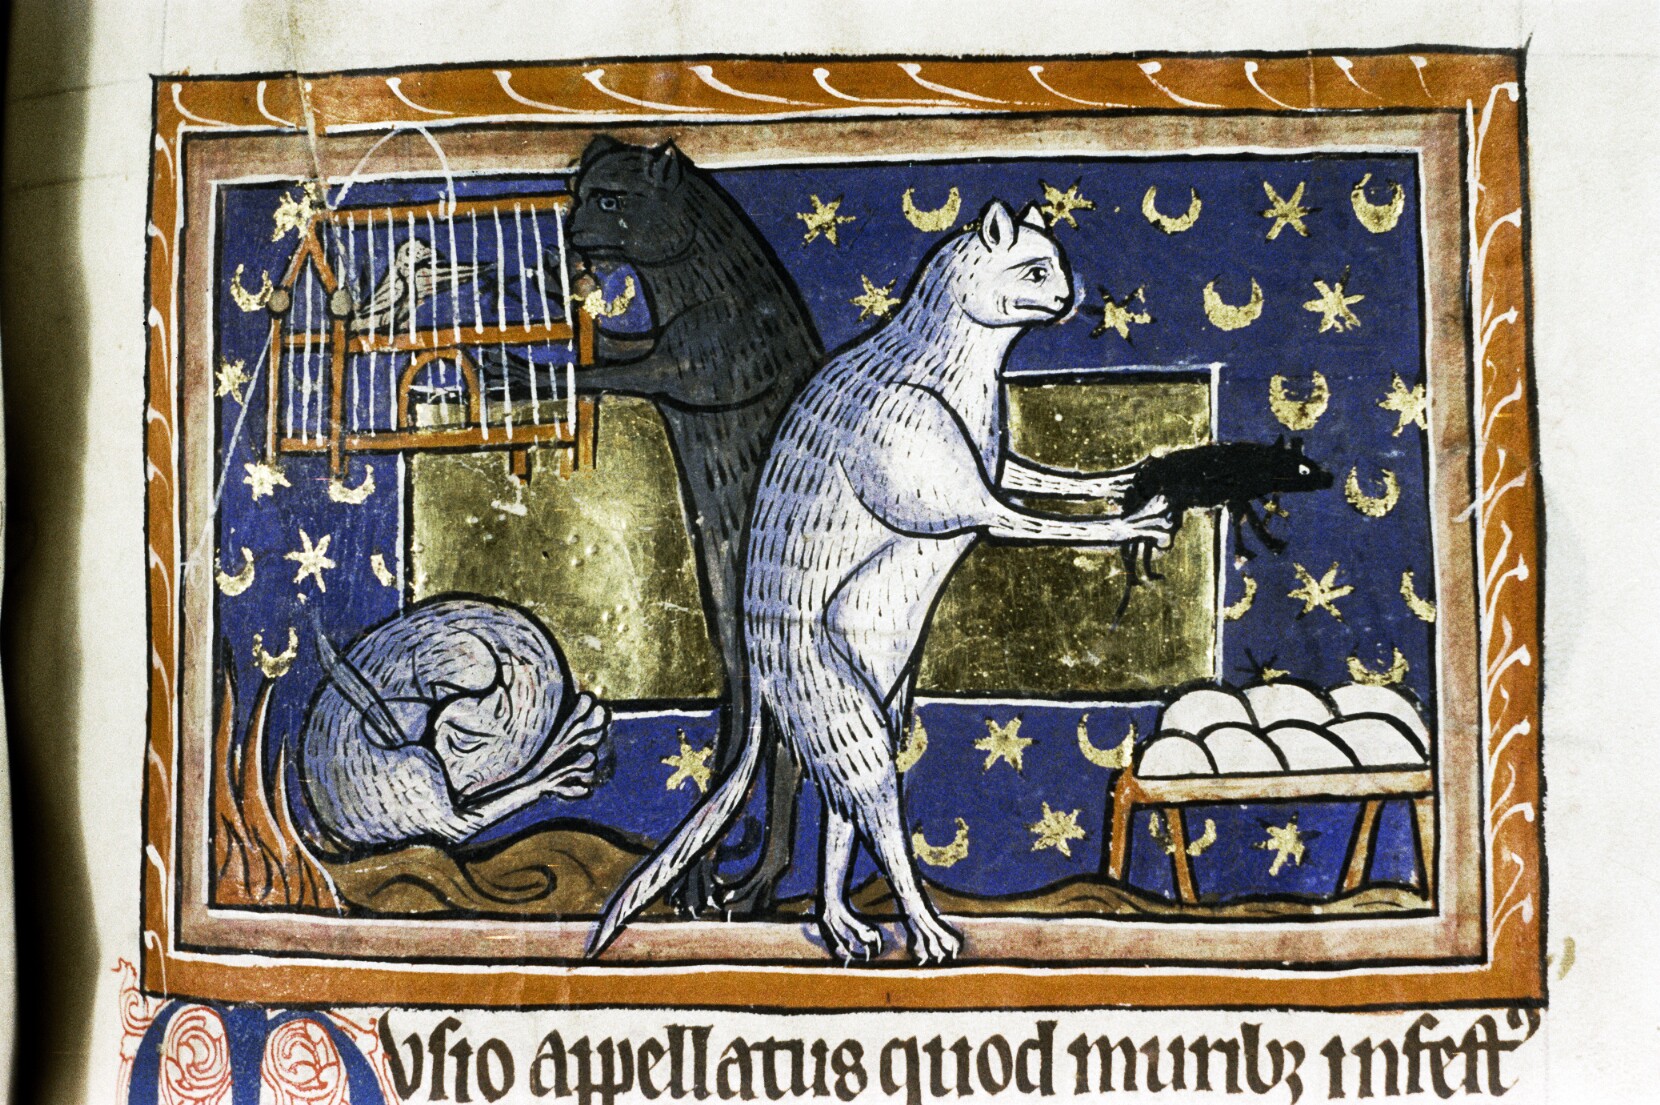 Musio appellatus quod muribꝫ infestꝰ